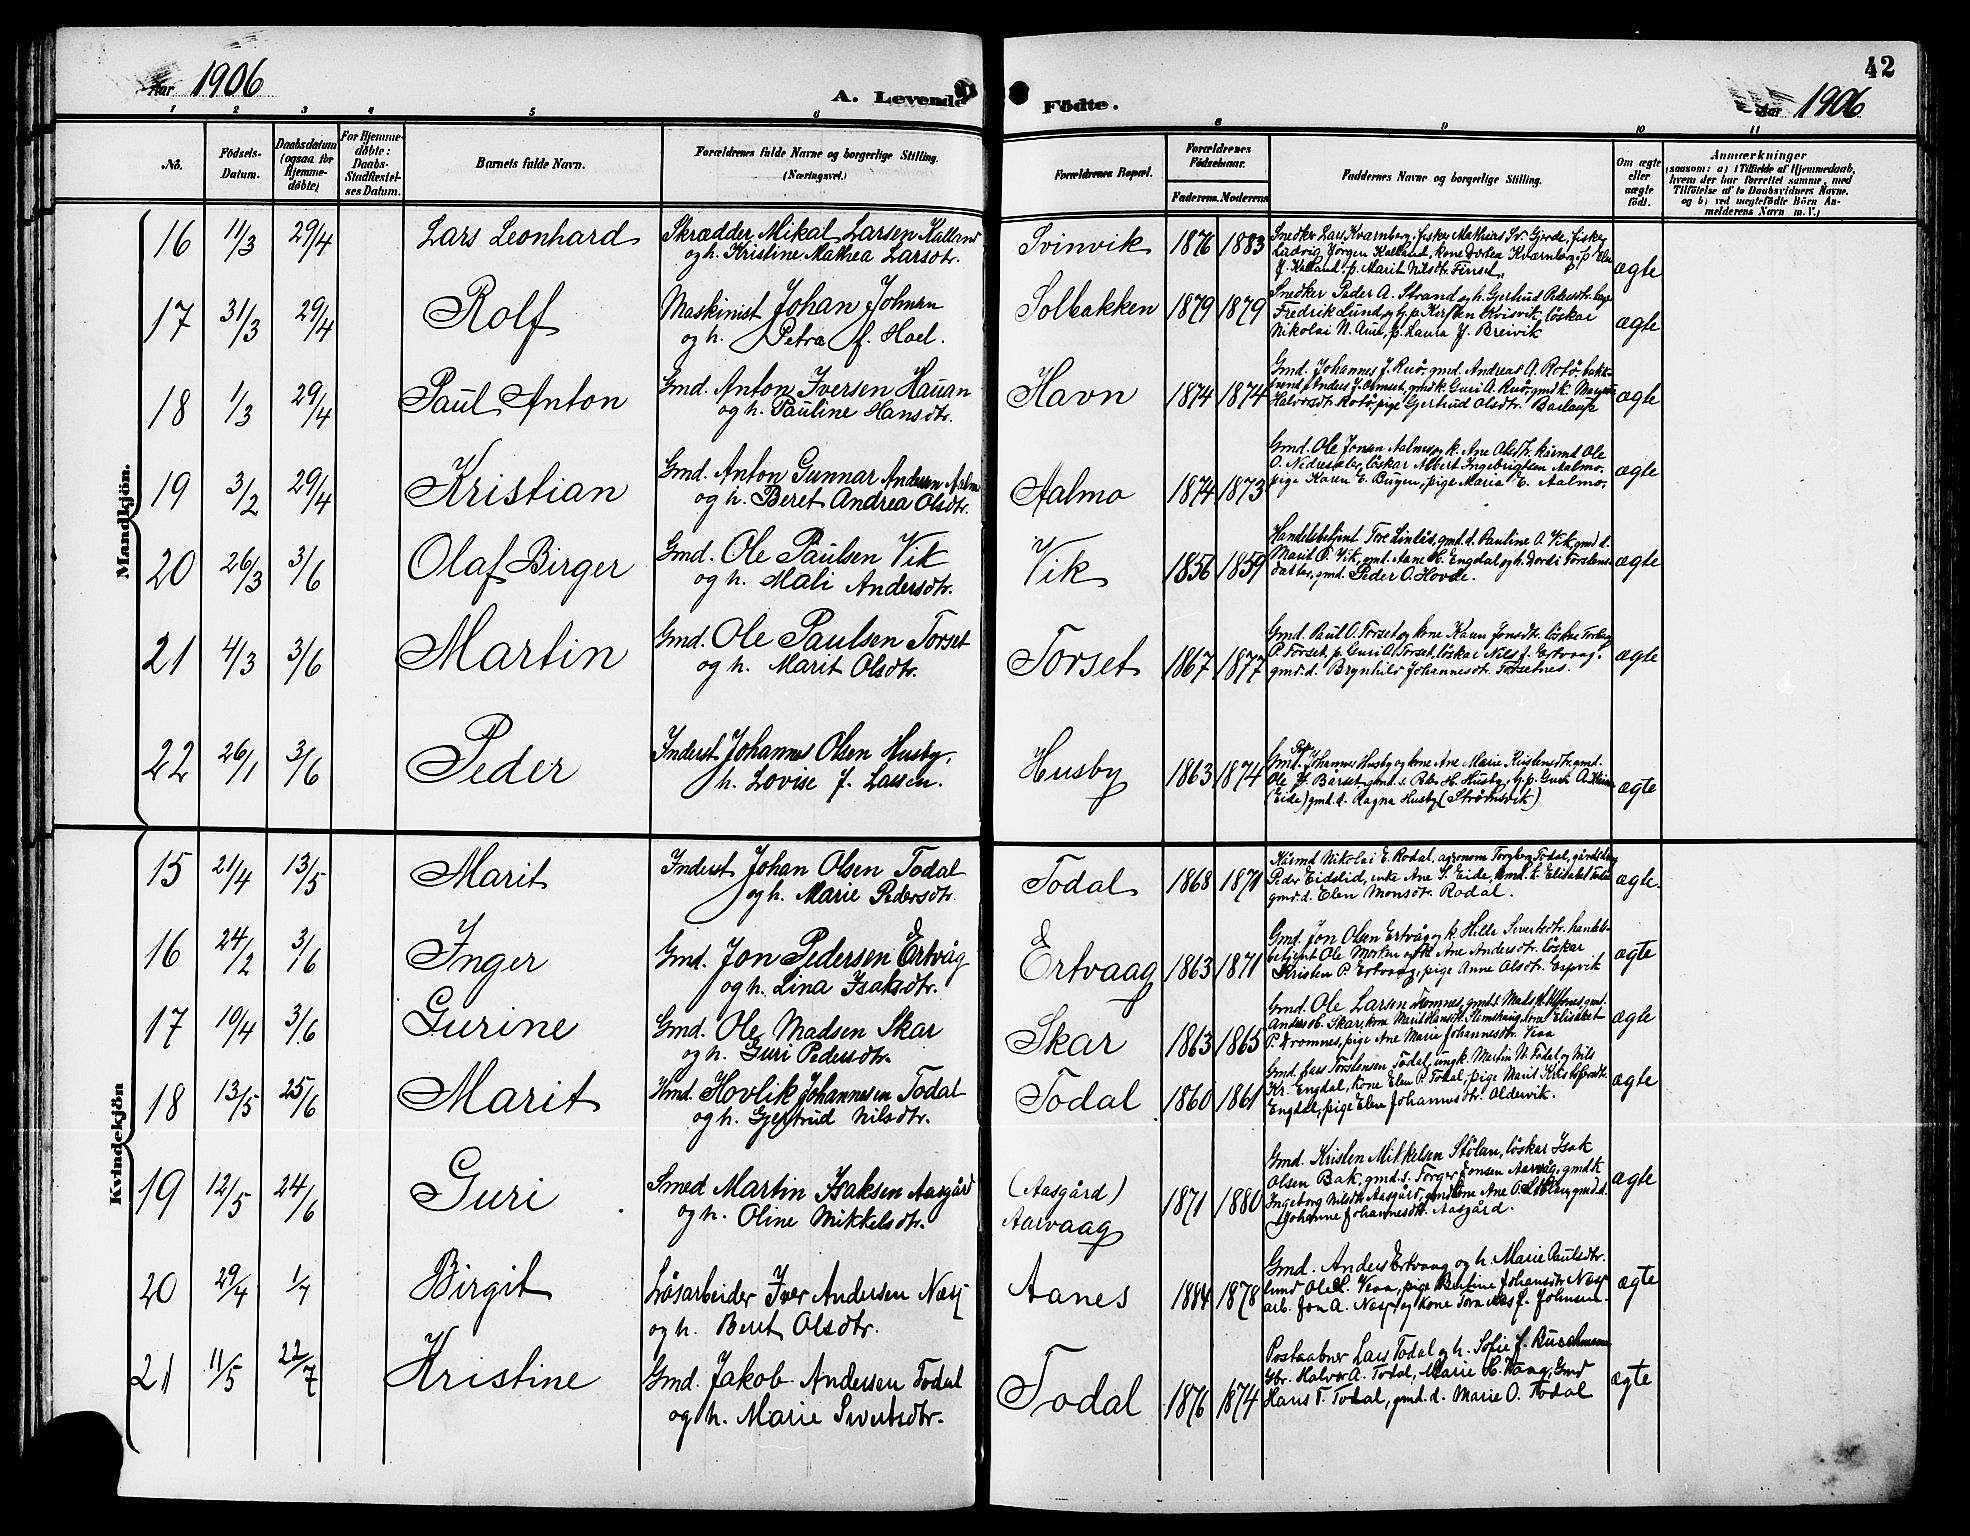 42
Aar 1906
A. Levende Födte.
Aar 1906
1 2 3 4 5 6 8 9 10 11
No.
Födsels-Datum.
Daabsdatum (ogsaa for Hjemme-döbte)
For Hjemme-döbte: Daabs-Stadfæstel-ses Datum.
Barnets fulde Navn.
Forældrenes fulde Navne og borgerlige Stilling.
(Næringsvei.)
Forældrenes Bopæl.
Forældrenes Födselsaar.
Faderens. Moderens.
Faddernes Navne og borgerlige Stilling.
Om ægte eller uægte födt.
Anmærkninger
(saasom: a) i Tilfælde af Hjemmedaab,
hvem der har forrettet samme, med
Tilföielse af to Daabsvidners Navne.
og b) ved uægtefödte Börn An-
melderens Navn m. V.)
Mandkjön.
16 11/3 29/4 Lars Leonhard Skrædder Mikal Larsen Kalland
og h. Kristine Mathea Larsdtr.
Svinvik 1876 1883 Snedker Lars Kvarnberg, fisker Mathias Sv. Gjerde, fisker
Ludvig Jörgen Kalland, kone Dortea Kværnberg, p Elen
J. Kalland p. Marit Nilsdtr. Finset.
ægte
17 31/3 29/4 Rolf Maskinist Johan Johnsen
og h. Petra f. Hoel.
Solbakken 1879 1879 Snedker Peder A. Strand og h. Gjertrud Pedersdtr.
Fredrik Lund, p Kirsten Kvisvik, löskar
Nikolai N. Aune, p. Laura J. Breivik
ægte
18 1/3 29/4 Paul Anton Gmd. Anton Iversen Hauan
og h. Pauline Hansdtr.
Havn 1874 1874 Gmd. Johannes J. Ruö, gmd. Andreas A. Rotö,
Anders J. Ormset, gmdk. Guri A. Ruö, gmdk.
Halvorsdtr. Rotö, pige Gjertrud Olsdtr. Baslaug
ægte
19 3/2 29/4 Kristian Gmd. Anton Gunnar Andersen Aalmo
og h. Beret Andrea Olsdtr.
Aalmo 1874 1873 Gmd. Ole Jonsen Aalmo og k. Ane Olsdtr. Ole
O. Nedresæter, löskar Albert Ingebrigtsen Aalmo,
pige Karen E. Bugen, pige Maria E. Aalmo.
ægte
20 26/3 3/6 Olaf Birger Gmd. Ole Paulsen Vik
og h. Mali Andersdtr.
Vik 1856 1859 Handelsbetjent Tore Linlös, gmd.d. Pauline O. Vik, gmd d.
Marit P. Vik, gmd. Aane H. Engdal og h. Dordi Torstens-
datter, gmd. Peder O. Hovde.
ægte
21 4/3 3/6 Martin Gmd. Ole Paulsen Torset
og h. Marit Olsdtr.
Torset 1867 1877 Gmd. Paul O. Torset og kone Karen Jonsdtr. löskar
P. Torset, p. Guri O. Torset, löskar Nils J. Ertvaag,
gmd.d. Brynhild Johannesdtr. Torsetnes.
ægte
22 26/1 3/6 Peder Inderst Johannes Olsen Husby,
h. Lovise J. Lassen.
Husby 1863 1874 Gmd. Johannes Husby og kone Ane Marie Kristensdtr. gmd.
Ole J. Bårset, gmd. s. Peter H. Husby, p. Guri
(Eide) gmd. d. Ragna Husby (Strömsvik)
ægte
Kvindekjön
15 21/4 13/5 Marit Inderst Johan Olsen Todal
og h. Marie Pedersdtr.
Todal 1868 1871 Nikolai E. Rodal, agronom Torgberg Todal,
Peder Eidslid, enke Ane S. Eide, gmd. k. Elisabet Todal
gmd.d. Elen Monsdtr. Rodal.
ægte.
16 24/2 3/6 Inger Gmd. Jon Pedersen Ertvåg
og h. Lina Isaksdtr.
Ertvaag 1863 1871 Gmd. Jon Olsen Ertvåg og k. Hille Sivertsdtr. handels-
betjent Ole Morken og Ane Andersdtr. löskar
Kristen P. Ertvaag, pige Anne Olsdtr. Espvik
ægte
17 19/4 3/6 Gurine Gmd. Ole Madsen Skar
og h. Guri Pedersdtr.
Skar 1863 1865 Gmd. Ole Larsen Dromnes, gmd.s. Mads gmd.
Anders Skar, kone Marit Hansdtr. Stemshaug, Ane Elisabet
P. Dromnes, pige Ane Marie Johannesdtr. Vean
ægte
18 13/5 25/6 Marit Gmd. Hovlik Johannesen Todal
og h. Gjertrud Nilsdtr.
Todal 1860 1861 Gmd. Lars Torstensen Todal, ungk. Martin N. Todal og Nils
Kr. Engdal, kone Elen P. Todal, pige Marit Kristofersdtr.
Engdal, pige Elen Johannesdtr. Oldervik.
ægte
19 12/5 24/6 Guri Smed Martin Isaksen Aasgård
og h. Oline Mikkelsdtr.
(Aasgård)
Aarvaag
1871 1880 Gmd. Kristen Mikkelsen Stölan, löskar Isak
Olsen Bak, gmd.s. Torger Jonsen Aarvåg, gmd k
Ingeborg Nilsdtr. Aasgård, gmd kone Ane O. Stölan, gmd d.
Johanne Johannesdtr. Aasgård.
ægte
20 29/4 1/7 Birgit Lösarbeider Iver Andersen Næsj
og h. Beret Olsdtr.
Aanes 1884 1878 Gmd. Anders Ertvaag og h. Marie Paulsdtr.
Ole L. Vean, pige Bertine Johansdtr. Næsj
arb. Jon A. Næsj og kone f. Johnsen.
ægte
21 11/5 22/7 Kristine Gmd. Jakob Andersen Todal
og h. Marie Sivertsdtr.
Todal 1876 1874 Postaabner Lars Todal og h. Sofie f. Buschmann
Gbr. Halvor A. Todal, Marie H. Vaag, Gmd
Hans T. Todal, gmd. d. Marie O. Todal
ægte